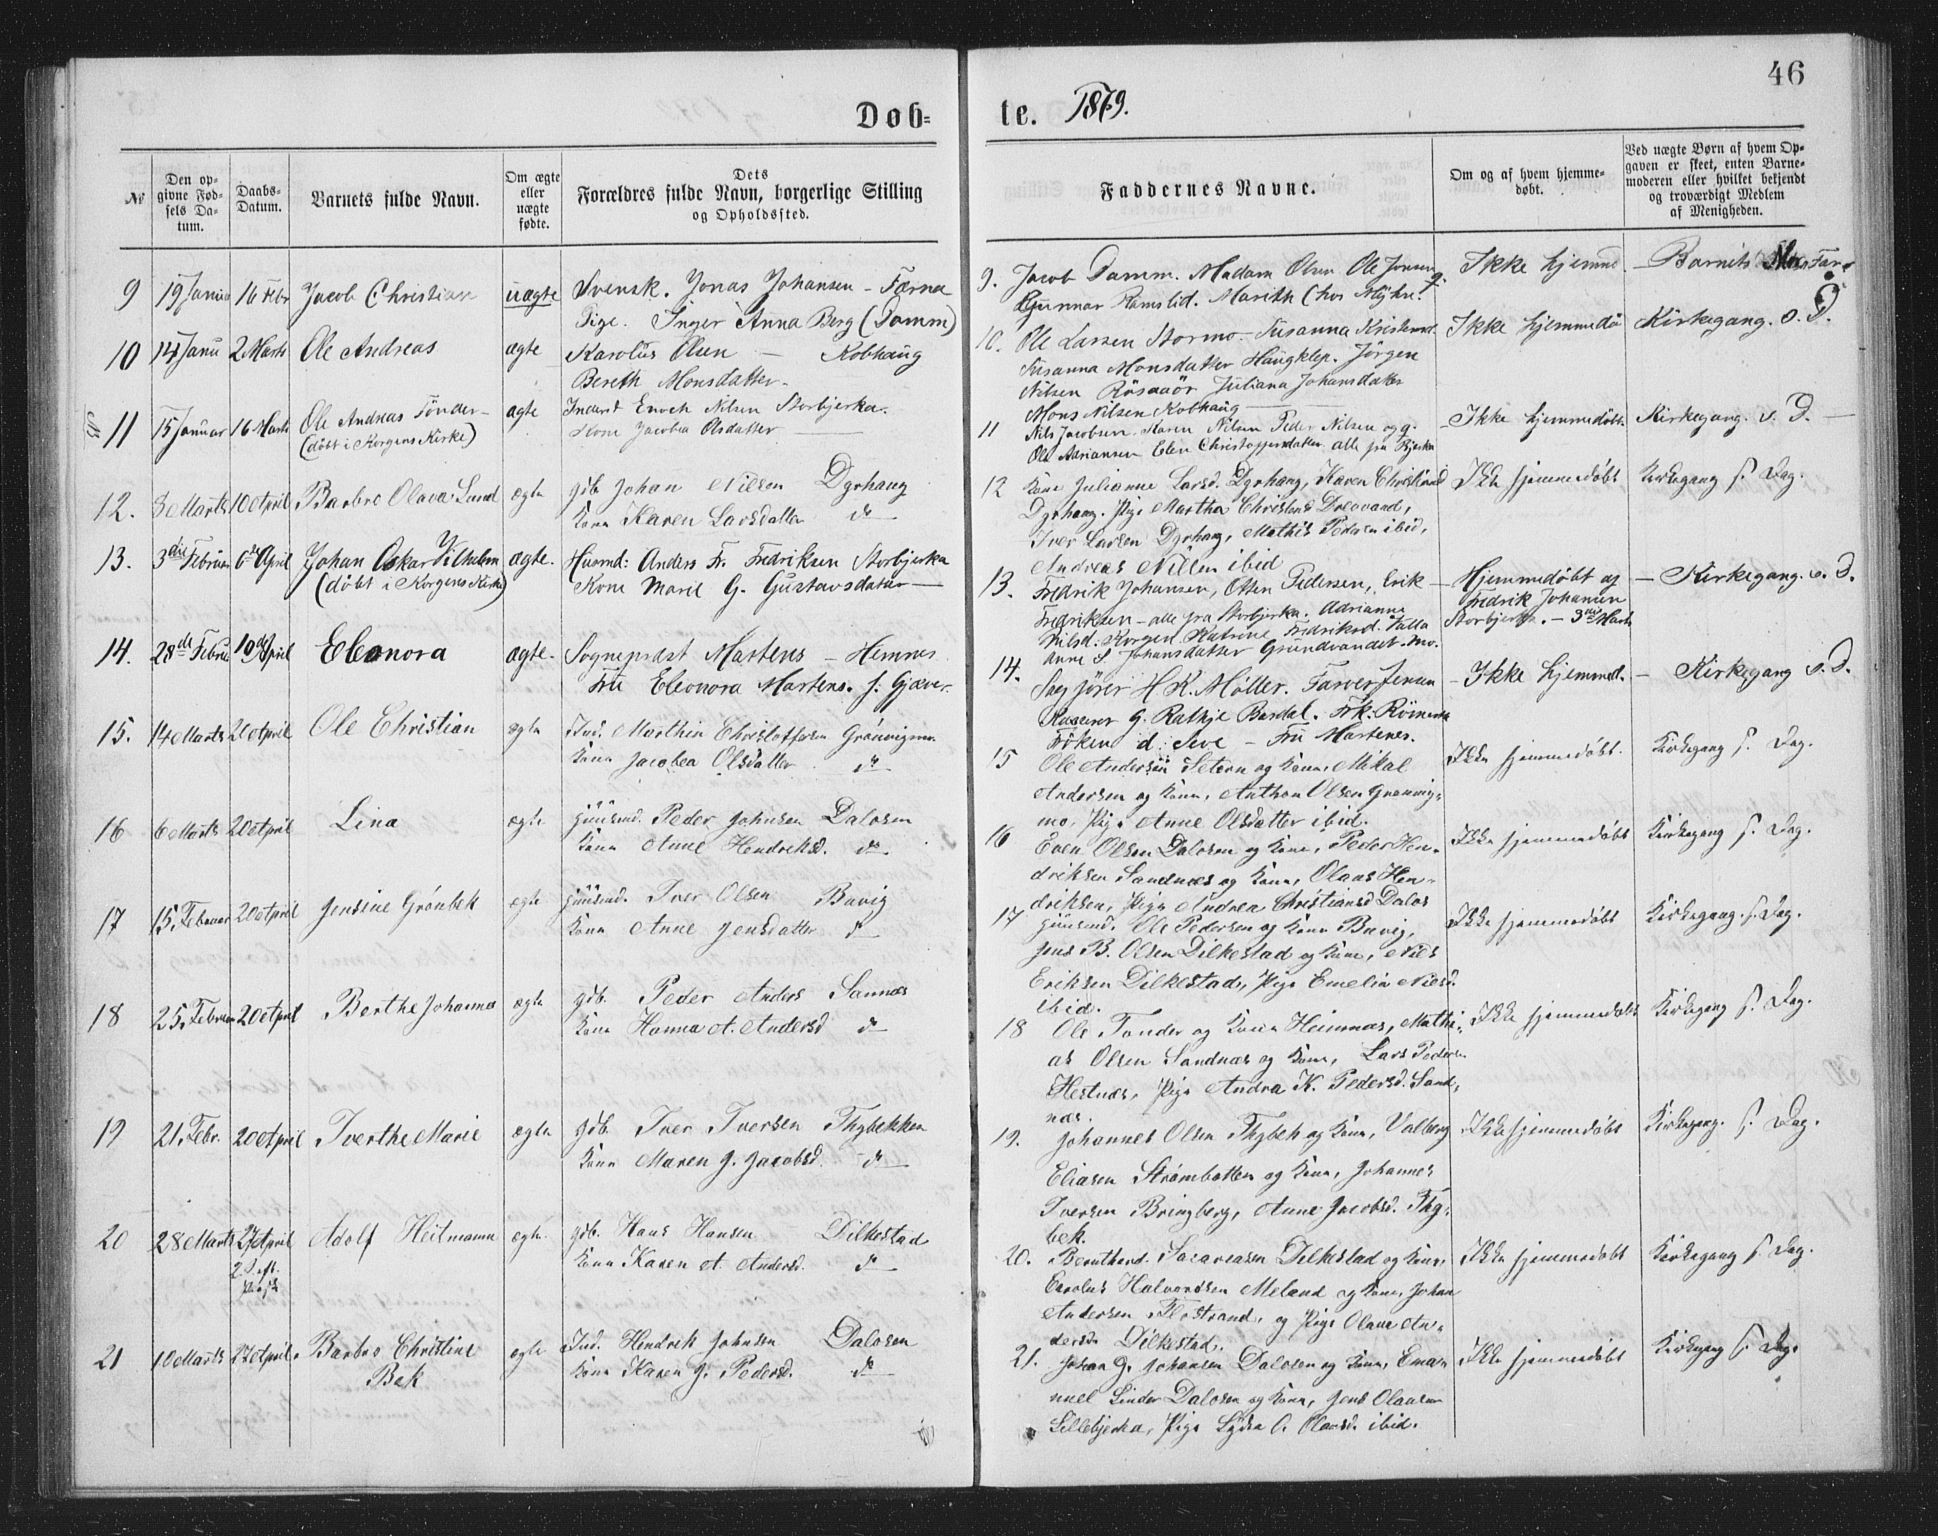 46
Døb=
te. 1879.
№
Den op-
givne Fød-
sels Da-
tum.
Daabs-
Datum.
Barnets fulde Navn.
Om ægte
eller
uægte
fødte.
Dets
Forældres fulde Navn, borgerlige Stilling
og Opholdssted.
Faddernes Navne.
Om og af hvem hjemme-
døbt.
Ved uægte Børn af hvem Op-
gaven er skeet, enten Barne-
moderen eller hvilket bekjendt
og troværdigt Medlem
af Menigheden.
9 19 Janua 16 Febr Jacob Christian uægte Svensk. Jonas Johansen - Færna
Pige. Inger Anna Berg (Damm)
9. Jacob Damm. Madam Olsen Ole Jonsen
Gunnar Ramslid. Marith (hos Myhre.
Ikke hjemme - Barnets Far
10 14 Janu 2 Marts Ole Andreas ægte Karolus Olsen - Kobhaug
Bereth Monsdatter -
10. Ole Larsen Stormo - Susanna Kristensd.
Susanna Monsdatter Haugklep. Jörgen
Nilsen Rösaaör Juliana Johansdatter
Mons Nilsen Kobhaug
Ikke hjemmedö Kirkegang. s. D.
11 15 Januar 16 Marts Ole Andreas Tönder -
(döbt i Korgens Kirke)
ægte Inderst Enoch Nilsen Storbjerka.
Kone Jacobia Olsdatter
11 Nils Jacobsen. Karen Nilsen Peder Nilsen og g.
Ole Adriansen Elen Christoffersdatter alle fra Bjerka
- Ikke hjemmedöbt - Kirkegang. s. D. -
12. 3 Marts 10 April Barbro Olava Lund ægte gdb Johan Nilsen Dyrhaug
Kone Karen Larsdatter do
12 Kone Julianne Larsd. Dyrhaug, Karen Christiansd
Dyrhaug. Pige Martha Christensd Drevvand,
Iver Larsen Dyrhaug, Mathis Pedersen ibid,
Andreas Nilsen ibid
Ikke hjemmedöbt Kirkegang s. Dag.
13. 3die Februar 6te April Johan Oskar Vilhelm
(döbt i Korgens Kirke)
ægte. Husmd: Anders Fr. Fredriksen Storbjerka
Kone Marie G. Gustavsdatter
13. Fredrik Johansen, Otten Pedersen, Erik
Fredriksen - alle fra Storbjerka. Adrianna
Nilsd. Korgen. Katrine Fredriksd. Valla
Anne S Johansdatter Grundvandet. mo.
- Hjemmedöbt af
Fredrik Johansen
Storbjerka. - 3die Marts
- Kirkegang. s. D.
14. 28de Februar 19de April Eleonora ægte. Sogneprest Martens - Hemnes
Fru Eleonora Martens. f. Gjæver.
14. Sagförer H K. Möller. Farver Jensen
Kasserer G. Rathje Bardal. Frk. Römcke
Fröken d: Seve - Fru Martens.
- Ikke hjemmed. - Kirkegang s. D.
15. 14 Marts 20 April Ole Christian ægte Ind. Marthin Christoffersen Grönvigmo
Kone Jacobea Olsdatter do
15 Ole Andersen Setern og Kone, Mikal
Andersen og Kone, Anthon Olsen Grönvig-
mo, Pige Anne Olsdatter ibid.
Ikke hjemmedöbt. Kirkegang s. Dag.
16 6 Marts 20 April Lina ægte huusmd. Peder Johnsen Dalosen
Kone Anne Hendriksd. do
16 Even Olsen Dalosen og Kone, Peder Hen-
driksen Sandnæs og Kone, Olaus Hen-
driksen, Pige Andrea Christiansd Dalos
Ikke hjemmedöbt Kirkegang s. Dag.
17 15. Februar 20 April Jensine Grönbek ægte huusmd. Iver Olsen Buvig
Kone Anne Jensdatter do
17 huusmd. Ole Pedersen og Kone Buvig,
Jens B. Olsen Dilkestad og Kone, Nils
Eriksen Dilkestad, Pige Emelia Nilsd.
ibid.
Ikke hjemmedöbt Kirkegang. s. Dag.
18 25. Februar 20 April Berthe Johanna ægte gdb. Peder Anders Sannæs
Kone Hanna A. Andersd do
18 Ole Tander og Kone Heimnæs, Mathi-
as Olsen Sandnæs og Kone, Lars Peders.
Hestnæs, Pige Andrea K. Pedersd. Sand-
næs.
Ikke hjemmedöbt Kirkegang s. Dag.
19 21. Febr. 20 April Iverthe Marie ægte gdb. Iver Iversen Thybekken
Kone Maren J. Jacobsd. do
19. Johannes Olsen Thybek og Kone, Valberg
Eliasen Strömbotten og Kone, Johannes
Iversen Bringberg, Anne Jacobsd. Thy-
bek.
Ikke hjemmedöbt Kirkegang. s. Dag.
20 28 Marts 27 April
2. S. eft.
Paask
Adolf Heitmann ægte. gdb. Hans Hansen Dilkestad
Kone Karen A. Andersd. do
20. Bernthard. Sacariasen Dilkestad og Kone,
Carolus Halvordsen Meland og Kone, Johan
Andersen Flostrand, og Pige Olava An-
dersdr Dilkestad.
Ikke hjemmedöbt Kirkegang s. Dag.
21 10 Marts 27 April. Barbro Christine
Bek
ægte Ind. Hendrik Johnsen Dalosen
Kone Karen J. Pedersd. do
21. Johan G. Johansen Dalosen og Kone, Ema-
nuel Linder Dalosen og Kone, Jens Olausen
Lillebjerka, Pige Lydia O. Olausd. ibid.
Ikke hjemmedöbt Kirkegang s. Dag.